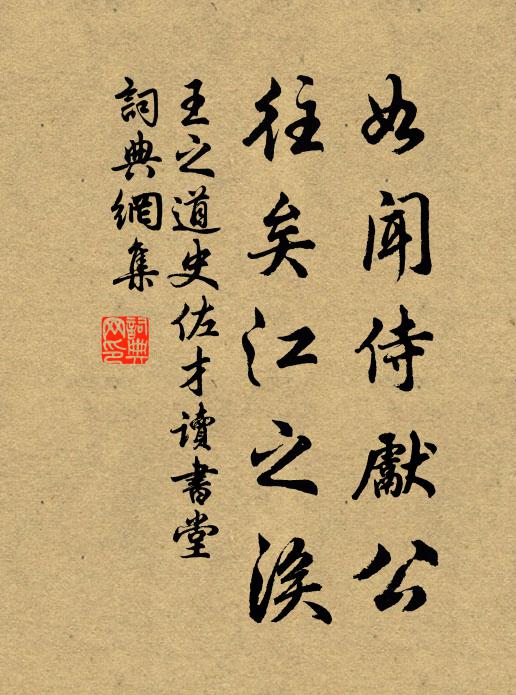 如聞侍獻公
往矣江之涘
王之道史佐才讀書堂
詞典網集
詞典網印